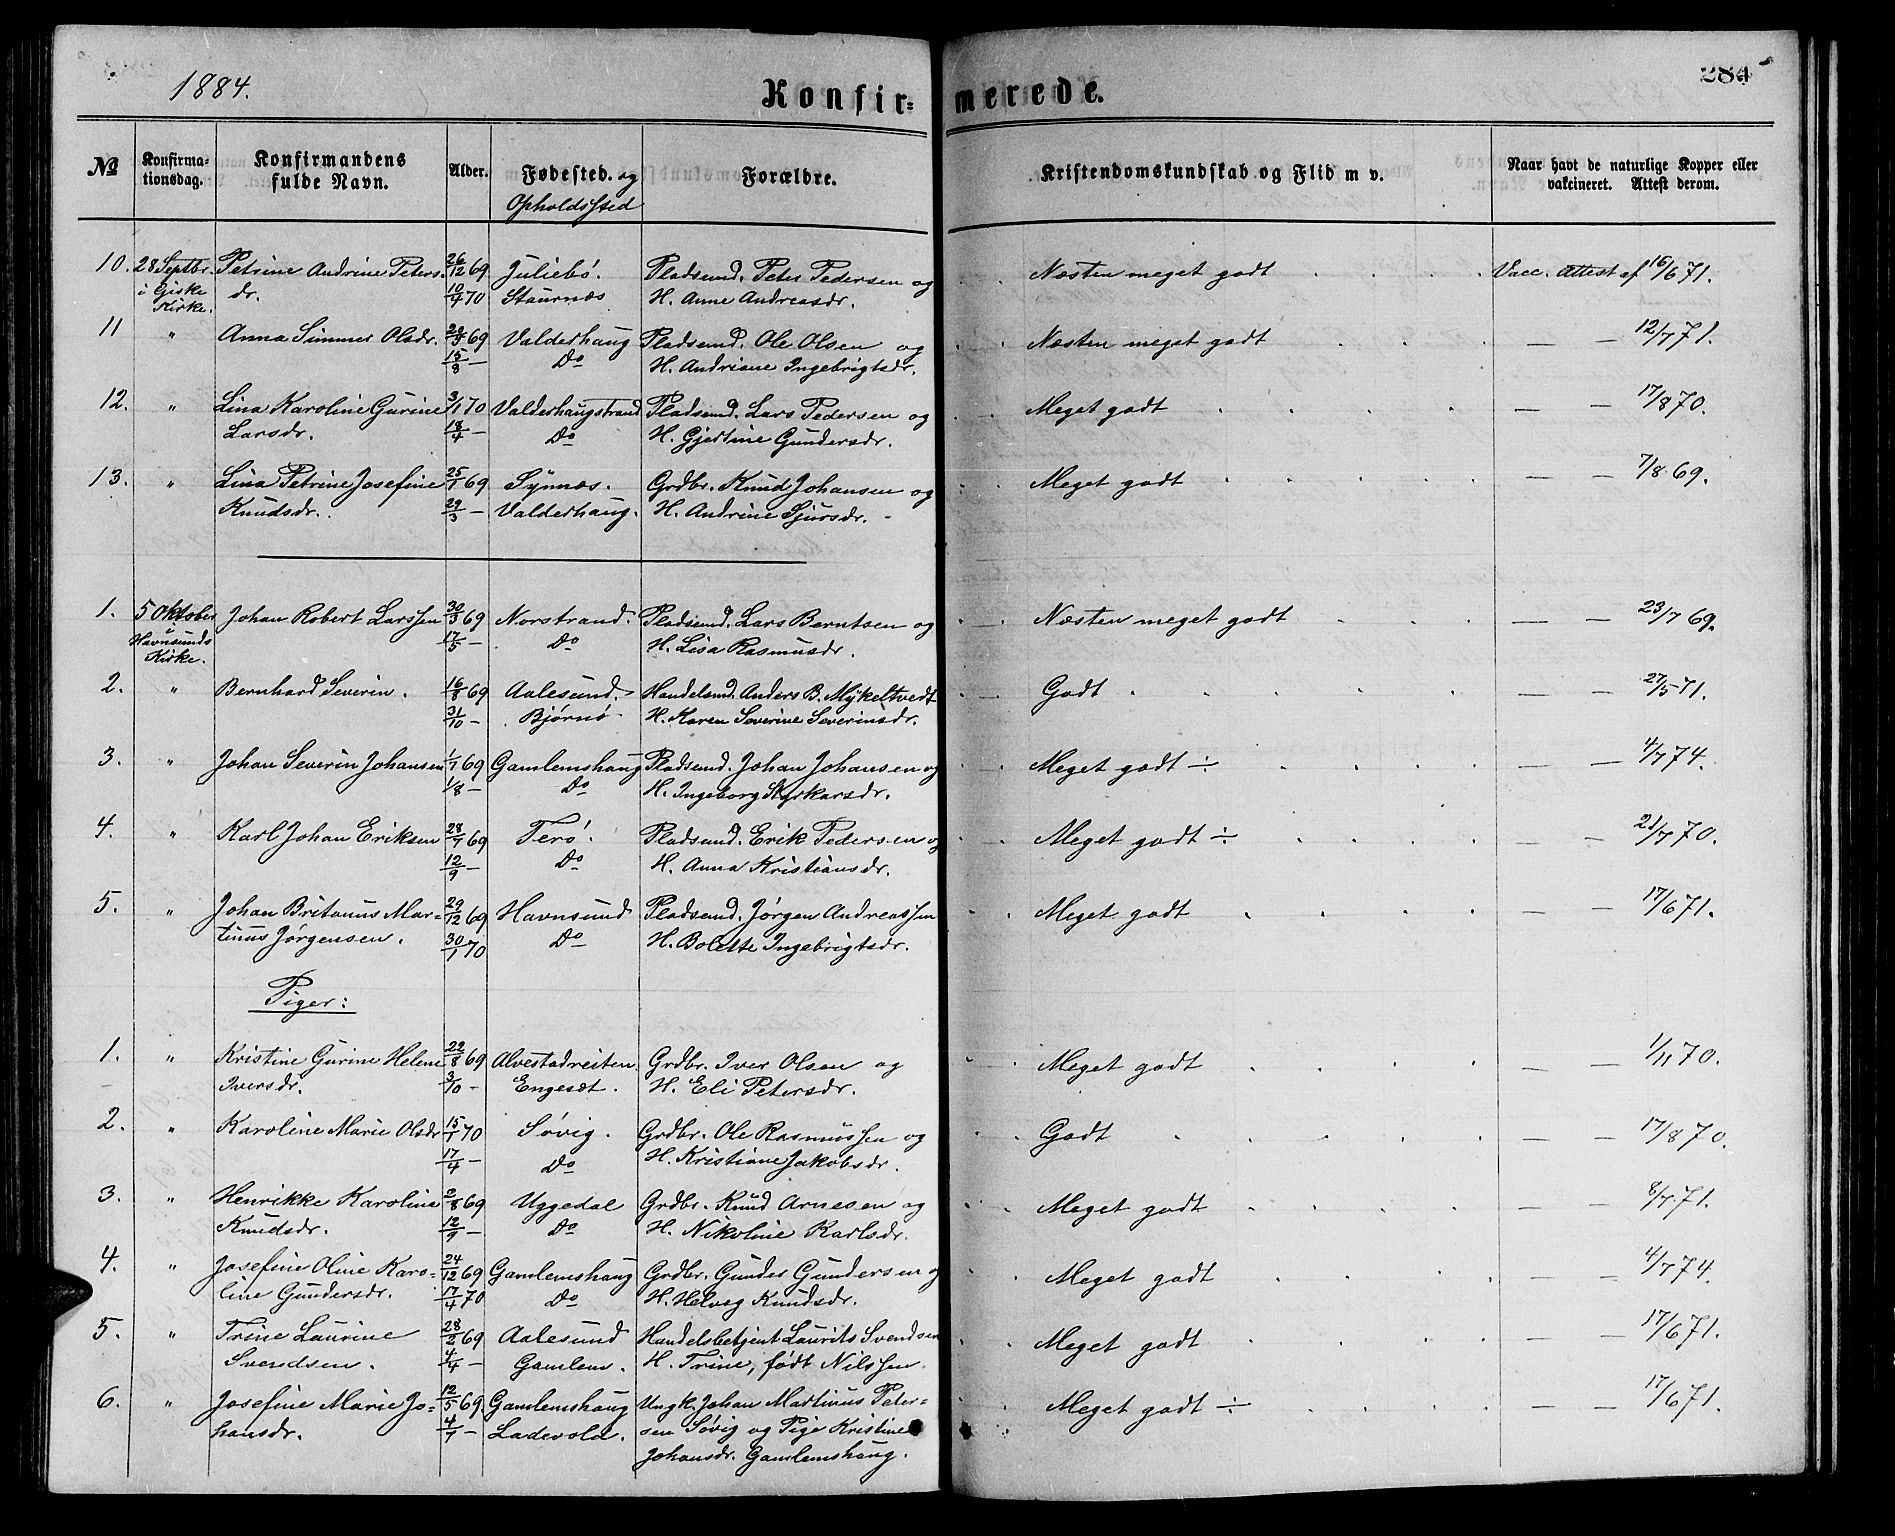 1884.
Konfirmerede.
284
No
Konfirmationsdag.
Konfirmandens fulde Navn.
Alder.
Fødested. og Opholdssted
Forældre.
Kristendomskundskab og Flid m v.
Naar havt de naturlige Kopper eller vakcineret. Attest derom.
10. 28 Septbr. Petrine Andrine Peters- 26/12 69 Juliebö. Pladsmd. Peter Pedersen og Næsten meget godt Vacc. Attest af 16/6 71.
i Giske Kirke. dr. 10/4 70 Staurnæs H. Anne Andreasdr.
11 " Anna Simmer Olsdr. 28/5 69 Valderhaug Pladsmd. Ole Olsen og Næsten meget godt — — 12/7 71.
15/8 — Do H. Andriane Ingebrigtsdr.
12. " Lina Karoline Gurine 3/1 70 Valderhaugstrand Pladsmd. Lars Pedersen og Meget godt — — 17/8 70.
Larsdr. 18/4 — Do H. Gjertine Gundersdr.
13. " Lina Petrine Josefine 25/1 69 Synnæs. Grdbr. Knud Johansen og Meget godt — — 7/8 69.
Knudsdr. 29/3 — Valderhaug. H. Andrine Sjursdr.
1. 5 Oktober Johan Robert Larssen 30/3 69 Norstrand. Pladsmd. Lars Berntsen og Næsten meget godt — — 23/7 69.
i Havnsunds Kirke. 17/5 — Do H. Lisa Rasmusdr.
2. " Bernhard Severin. 16/8 69 Aalesund. Handelsmd. Anders B. Mykeltvedt Godt — — 27/5 71.
31/10 — Bjørnø H. Karen Severine Severinsdr.
3. " Johan Severin Johansen 1/7 69 Gamlemshaug Pladsmd. Johan Johansen og Meget godt ÷ — — 4/7 74.
1/8 — Do H. Ingeborg Styrkarsdr.
4. " Karl Johan Eriksen 28/7 69 Terö. Pladsmd. Erik Pedersen og Meget godt ÷ — 21/7 70.
12/9 — Do H. Anna Kristiansdr.
5. " Johan Britanus Mar- 29/12 69 Havnsund Pladsmd. Jørgen Andreassen Meget godt — — 17/6 71.
tinus Jørgensen. 30/1 70 Do H. Bolette Ingebrigtsdr.
Piger:
1. " Kristine Gurine Helene 22/8 69 Alvestadreiten Grdbr. Iver Olsen og Meget godt — — 1/11 70.
Iversdr. 3/10 — Engesæt. H. Eli Petersdr.
2. " Karoline Marie Olsdr 15/1 70 Søvig. Grdbr. Ole Rasmussen og Godt — — 17/8 70.
17/4 — Do H. Kristiane Jakobsdr.
3. " Henrikke Karoline /8 69 Uggedal Grdbr. Knud Arnesen og Meget godt — — 8/7 71.
Knudsdr. 12/9 — Do H. Nikoline Karlsdr.
4. " Josefine Oline Karo- 24/12 69 Gamlemshaug Grdbr. Gunder Gundersen og Meget godt — — 4/7 74.
line Gundersdr. 17/4 70 Do H. Helveg Knudsdr.
5. " Trine Laurine 28/2 69 Aalesund Handelsbetjent Laurits Svendsen Meget godt — — 17/6 71.
Svendsen. 4/4 — Gamlem. H. Trine, født Nilssen.
6. " Josefine Marie Jo- 12/5 69. Gamlemshaug Ungk. Johan Martinus Peter- Meget godt ÷ — — 17/6 71.
hansdr. 4/7 — Ladevold. sen Søvig og Pige Kristine
Johansdr. Gamlemshaug.